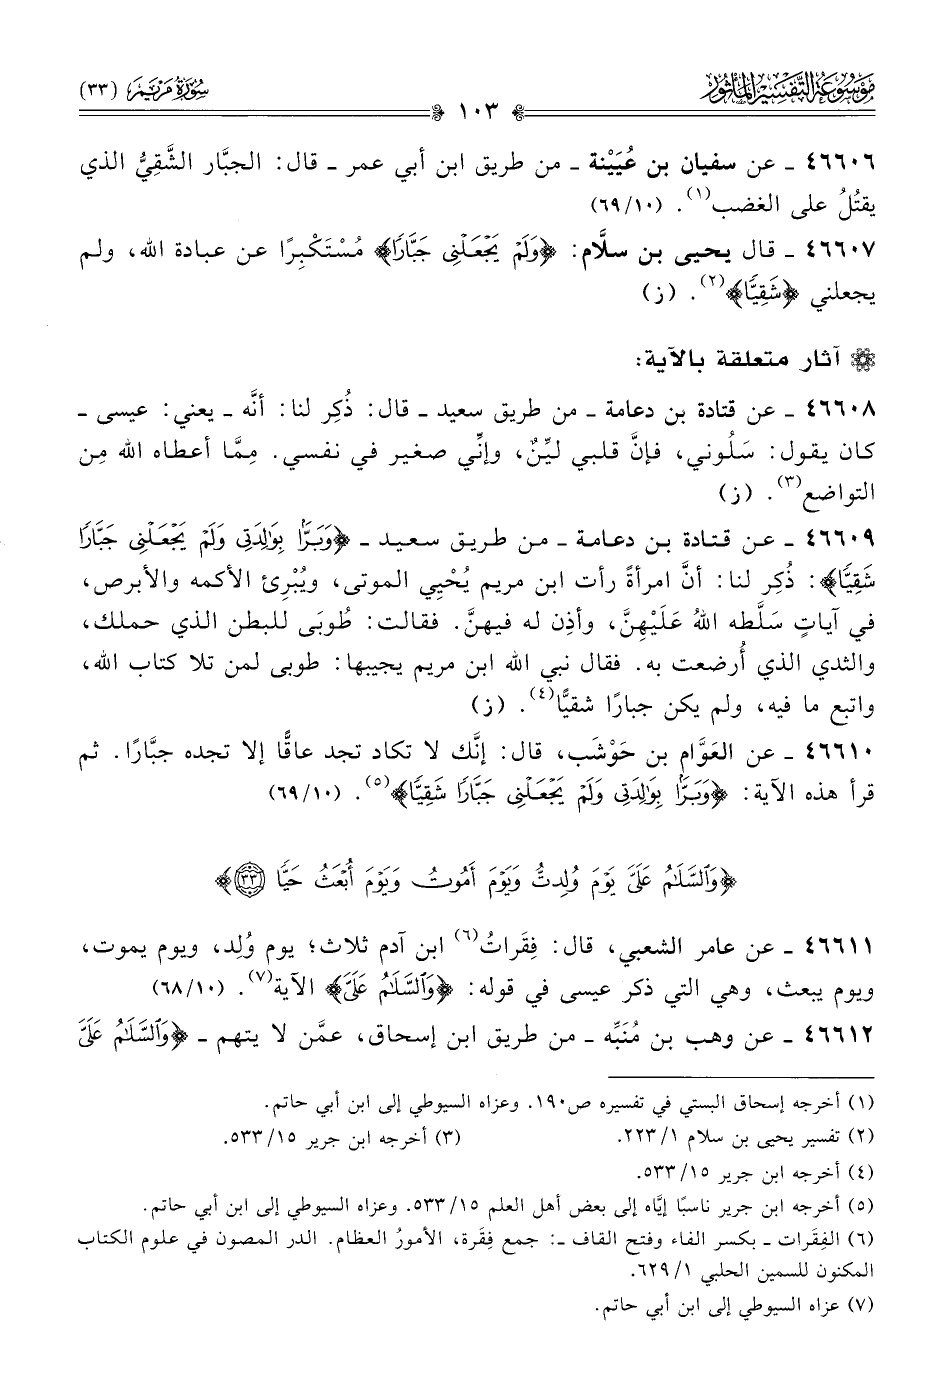 مَوْسُوعَةُ التَّفْسِيْرِ المَأْثُورِ
سُورَةُ مَرْيَمَ (٣٣)
١٠٣
٤٦٦٠٦ ـ عن سفيان بن عُيَيْنة ـ من طريق ابن أبي عمر ـ قال: الجبَّار الشَّقِيُّ الذي
يقتُلُ على الغضب(١). (١٠/٦٩)
٤٦٦٠٧ ـ قال يحيى بن سلَّام: ﴿وَلَمْ يَجْعَلْنِى جَبَّارًا﴾ مُسْتَكْبِرًا عن عبادة الله، ولم
يجعلني ﴿شَقِيًّا﴾(٢). (ز)
آثار متعلقة بالآية:
٤٦٦٠٨ ـ عن قتادة بن دعامة ـ من طريق سعيد ـ قال: ذُكِر لنا: أنَّه ـ يعني: عيسى ـ
كان يقول: سَلُوني، فإنَّ قلبي ليِّنٌ، وإنِّي صغير في نفسي. مِمَّا أعطاه الله مِن
التواضع(٣). (ز)
٤٦٦٠٩ ـ عن قتادة بن دعامة ـ من طريق سعيد ـ ﴿وَبَرًّۢا بِوَٰلِدَتِى وَلَمْ يَجْعَلْنِى جَبَّارًا
شَقِيًّا﴾: ذُكِر لنا: أنَّ امرأةً رأت ابن مريم يُحْيِي الموتى، ويُبْرِئ الأكمه والأبرص،
في آياتٍ سَلَّطه اللهُ عَلَيْهِنَّ، وأذِن له فيهنَّ. فقالت: طُوبَى للبطن الذي حملك،
والثدي الذي أُرضعت به. فقال نبي الله ابن مريم يجيبها: طوبى لمن تلا كتاب الله،
واتبع ما فيه، ولم يكن جبارًا شقيًّا(٤). (ز)
٤٦٦١٠ ـ عن العَوَّام بن حَوْشَب، قال: إنَّك لا تكاد تجد عاقًّا إلا تجده جبَّارًا. ثم
قرأ هذه الآية: ﴿وَبَرًّۢا بِوَٰلِدَتِى وَلَمْ يَجْعَلْنِى جَبَّارًا شَقِيًّا﴾(٥). (١٠/٦٩)
﴿وَٱلسَّلَٰمُ عَلَىَّ يَوْمَ وُلِدتُّ وَيَوْمَ أَمُوتُ وَيَوْمَ أُبْعَثُ حَيًّا ٣٣﴾
٤٦٦١١ ـ عن عامر الشعبي، قال: فِقَراتُ(٦) ابن آدم ثلاث؛ يوم وُلِد، ويوم يموت،
ويوم يبعث، وهي التي ذكر عيسى في قوله: ﴿وَٱلسَّلَٰمُ عَلَىَّ﴾ الآية(٧). (١٠/٦٨)
٤٦٦١٢ ـ عن وهب بن مُنَبِّه ـ من طريق ابن إسحاق، عمَّن لا يتهم ـ ﴿وَٱلسَّلَٰمُ عَلَىَّ
(١) أخرجه إسحاق البستي في تفسيره ص١٩٠. وعزاه السيوطي إلى ابن أبي حاتم.
(٢) تفسير يحيى بن سلام ١/٢٢٣.
(٣) أخرجه ابن جرير ١٥/٥٣٣.
(٤) أخرجه ابن جرير ١٥/٥٣٣.
(٥) أخرجه ابن جرير ناسبًا إيَّاه إلى بعض أهل العلم ١٥/٥٣٣. وعزاه السيوطي إلى ابن أبي حاتم.
(٦) الفِقَرات ـ بكسر الفاء وفتح القاف ـ: جمع فِقَرة، الأمورُ العظام. الدر المصون في علوم الكتاب
المكنون للسمين الحلبي ١/٦٢٩.
(٧) عزاه السيوطي إلى ابن أبي حاتم.